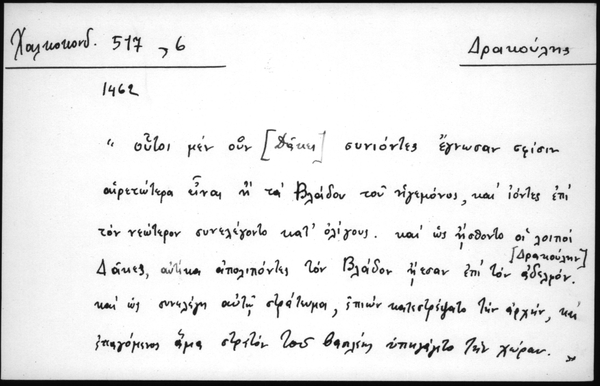 Χαλκοκονδ. 517,6 Δρακούλης
1462
" οὗτοι μὲν οὖν [Δᾶκες] συνιόντες ἔγνωσαν σφίσιν
αἱρετώτερα εἶναι ἢ τὰ Βλάδου τοῦ ἡγεμόνος, καὶ ἰόντες ἐπὶ
τὸν νεώτερον συνελέγοντο κατ' ὀλίγους. καὶ ὡς ᾔσθοντο οἱ λοιποὶ
Δᾶκες, αὐτίκα ἀπολιπόντες τὸν Βλάδον ᾔεσαν ἐπὶ τὸν ἀδελφόν. [Δρακούλην]
καὶ ὡς συνελέγη αὐτῷ στράτευμα, ἐπιὼν κατεστρέψατο τὴν ἀρχήν, καὶ
ἐπαγόμενος ἅμα στρατὸν τοῦ βασιλέως ὑπηγάγετο τὴν χώραν. "